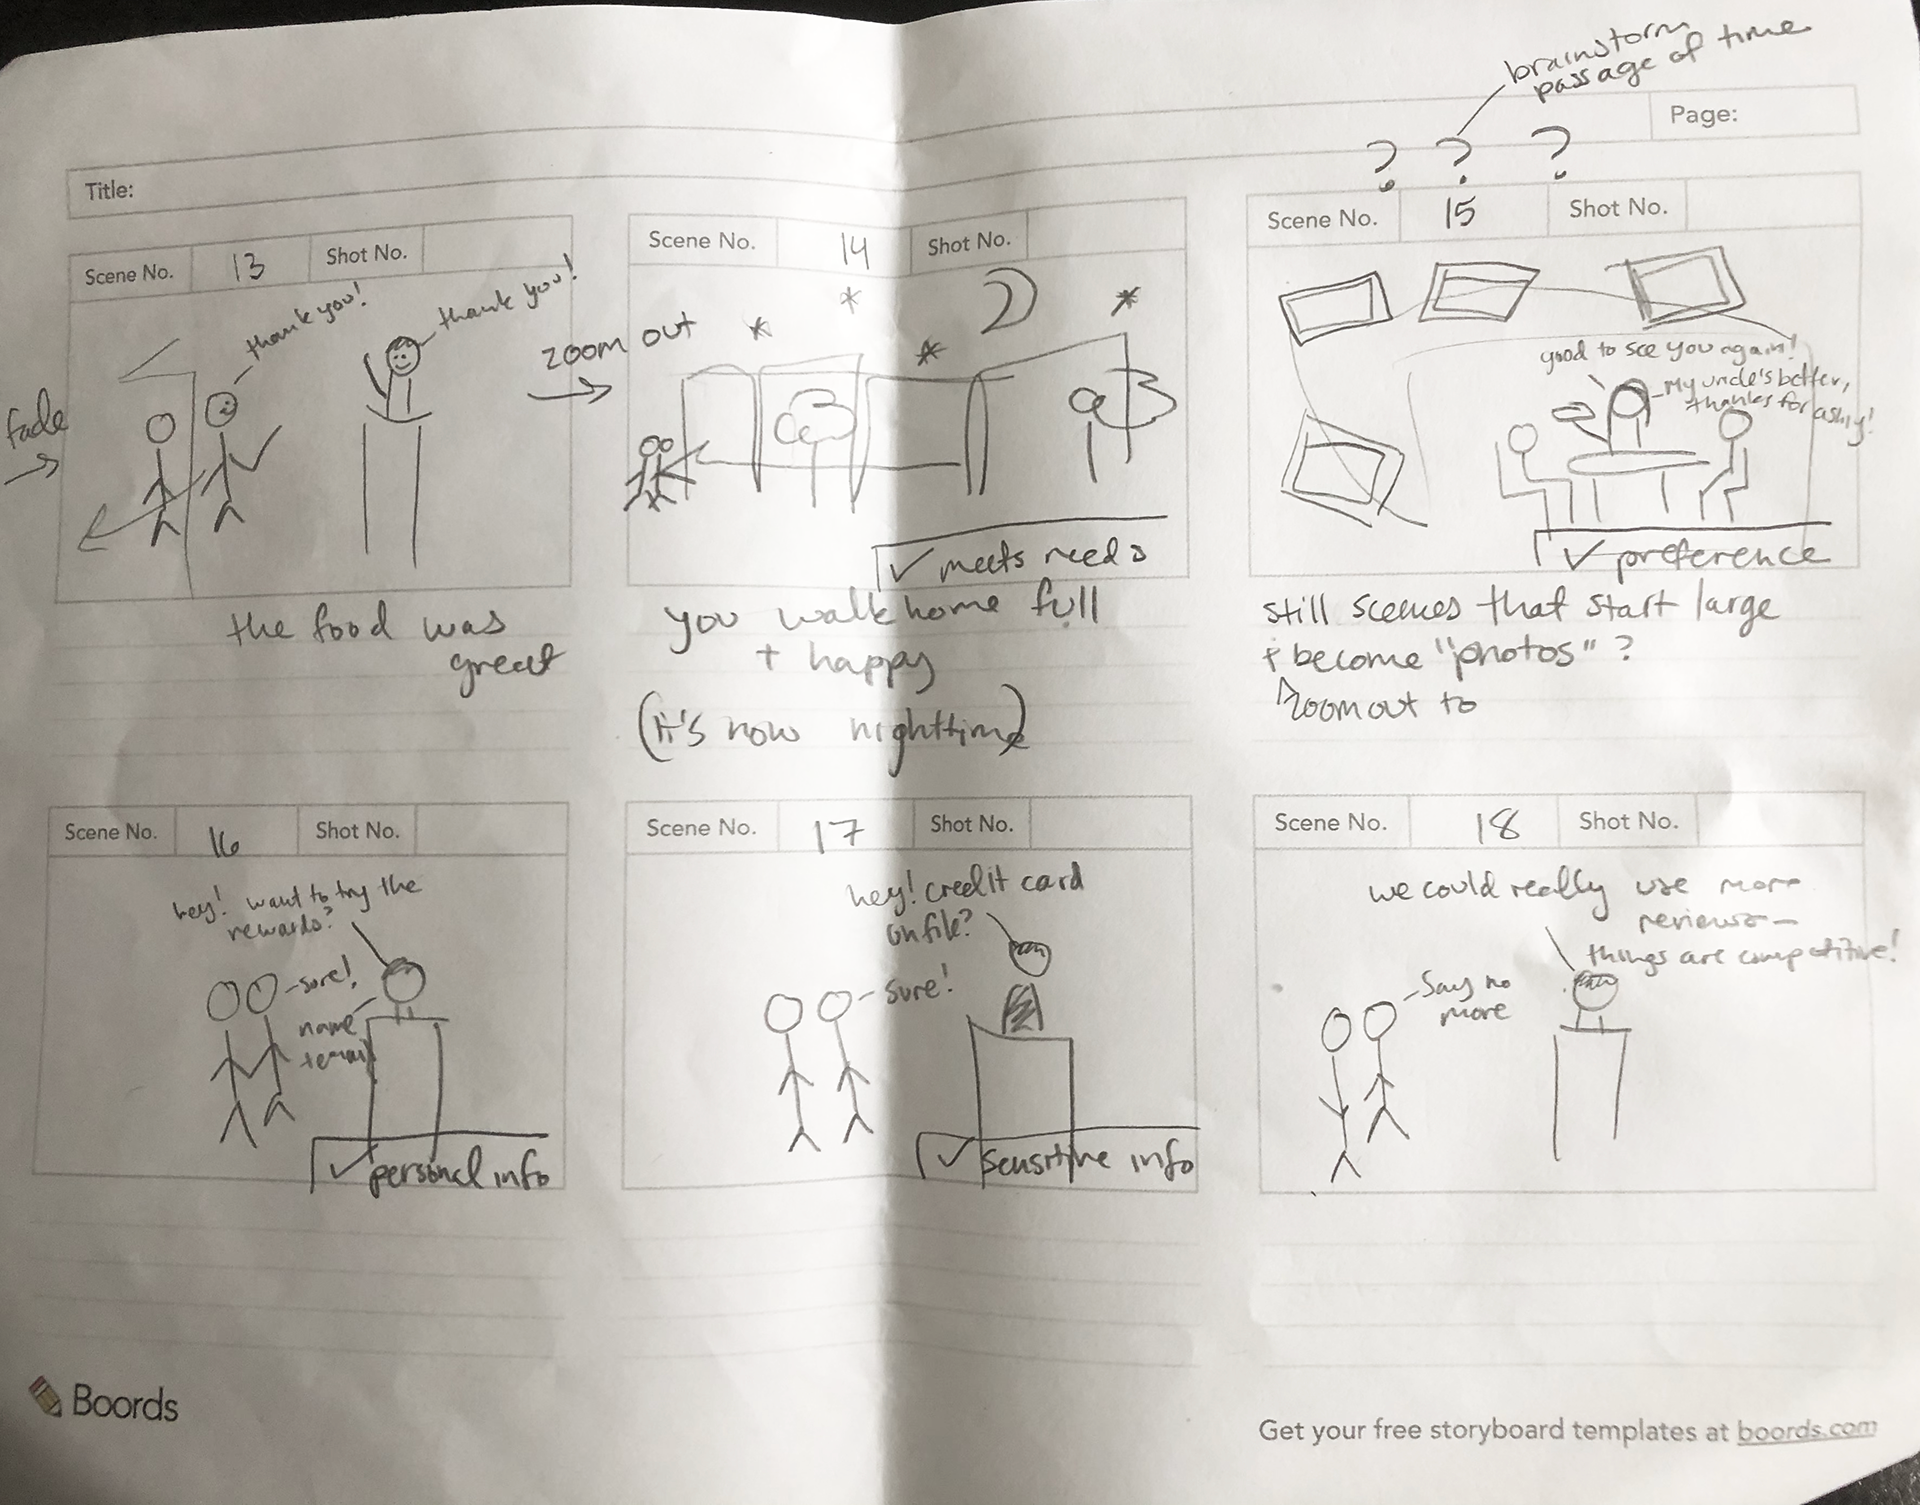 brainstorm
passage of time
Page:
? ? ?
Title:
Scene No. 13 Shot No.
thank you!
thank you!
fade
the food was
great
zoom out
Scene No. 14 Shot No.
✓ meets needs
you walk home full
+ happy
(it's now nighttime)
Scene No. 15 Shot No.
good to see you again!
My uncle's better,
thanks for asking!
✓ preference
still scenes that start large
+ become "photos"?
zoom out to
Scene No. 16 Shot No.
hey! want to try the
rewards?
sure!
name
+ email
✓ personal info
Scene No. 17 Shot No.
hey! credit card
on file?
sure!
✓ sensitive info
Scene No. 18 Shot No.
we could really use more
reviews—
things are competitive!
Say no
more
Boords
Get your free storyboard templates at boords.com